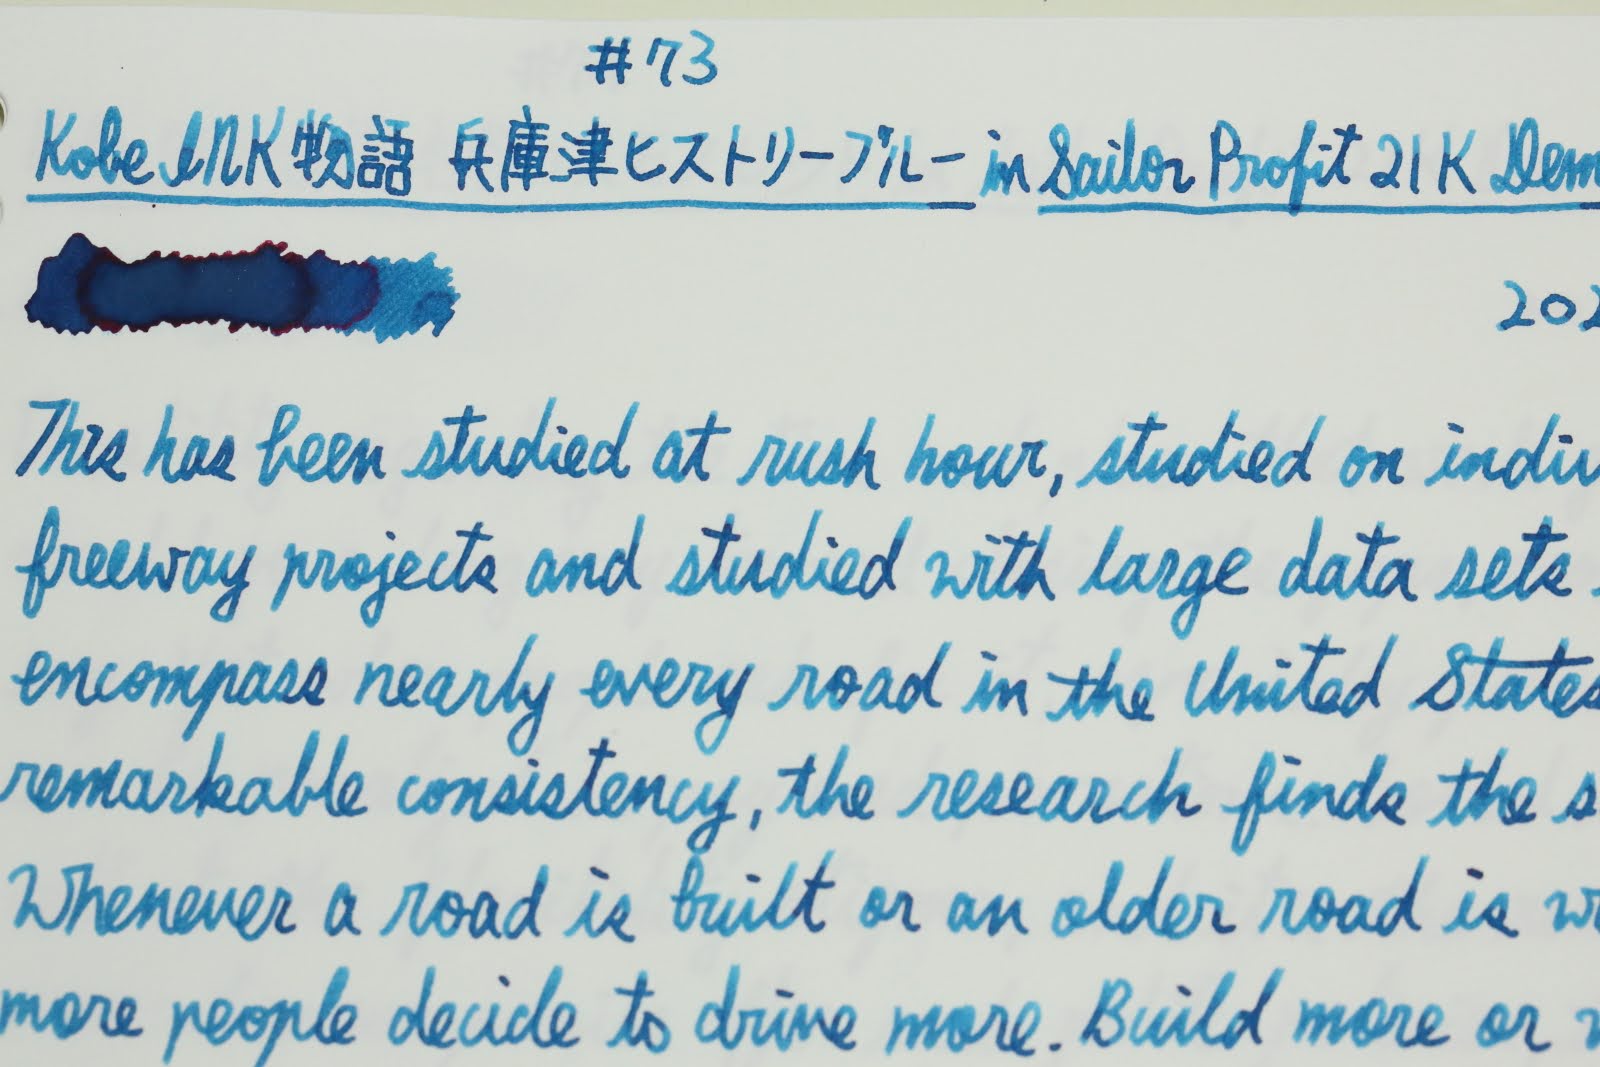 #73
Kobe INK物語 兵庫津ヒストリーブルー in Sailor Profit 21K Dem
202
This has been studied at rush hour, studied on indiv
freeway projects and studied with large data sets
encompass nearly every road in the United States
remarkable consistency, the research finds the s
Whenever a road is built or an older road is w
more people decide to drive more. Build more or w